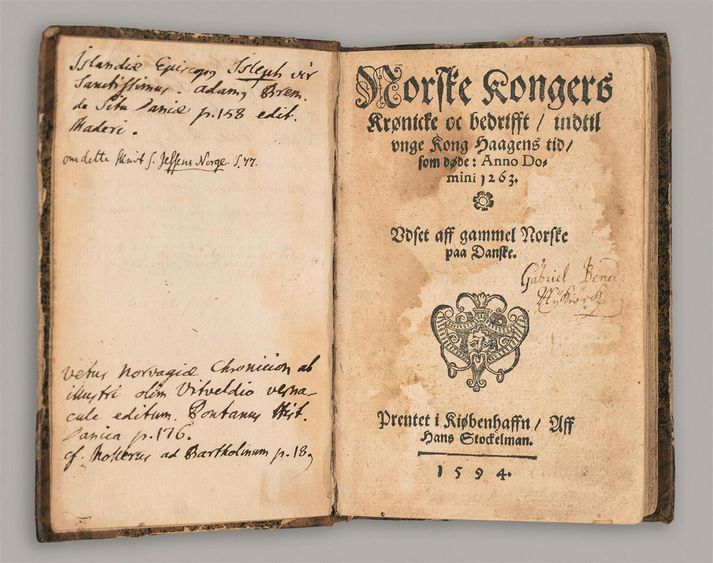 Islandiæ Episcop Isleph vir
Sanctissimus. adamg Brem.
de Situ Daniæ p.158 edit.
Maderi.
om dette skrivt s. Jessens Norge. S. 77.
vetus Norvagiæ Chronicion ab
illustri olim Vitveldio verna-
cule editum. Pontanus Hist.
Danica p.176.
cf. Mollerus ad Bartholinum p.18
Norske Kongers
Krønicke oc bedrifft / indtil
vnge Kong Haagens tid /
som døde: Anno Do-
mini 1263.
Vdset aff gammel Norske
paa Danske.
Gabriel
Prentet i Kiøbenhaffn / Aff
Hans Stockelman.
1594.